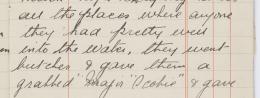 all the places where anyone
they had pretty well
into the water, they went
butcher & gave them a
grabbed "Major" "Scobie" & gave